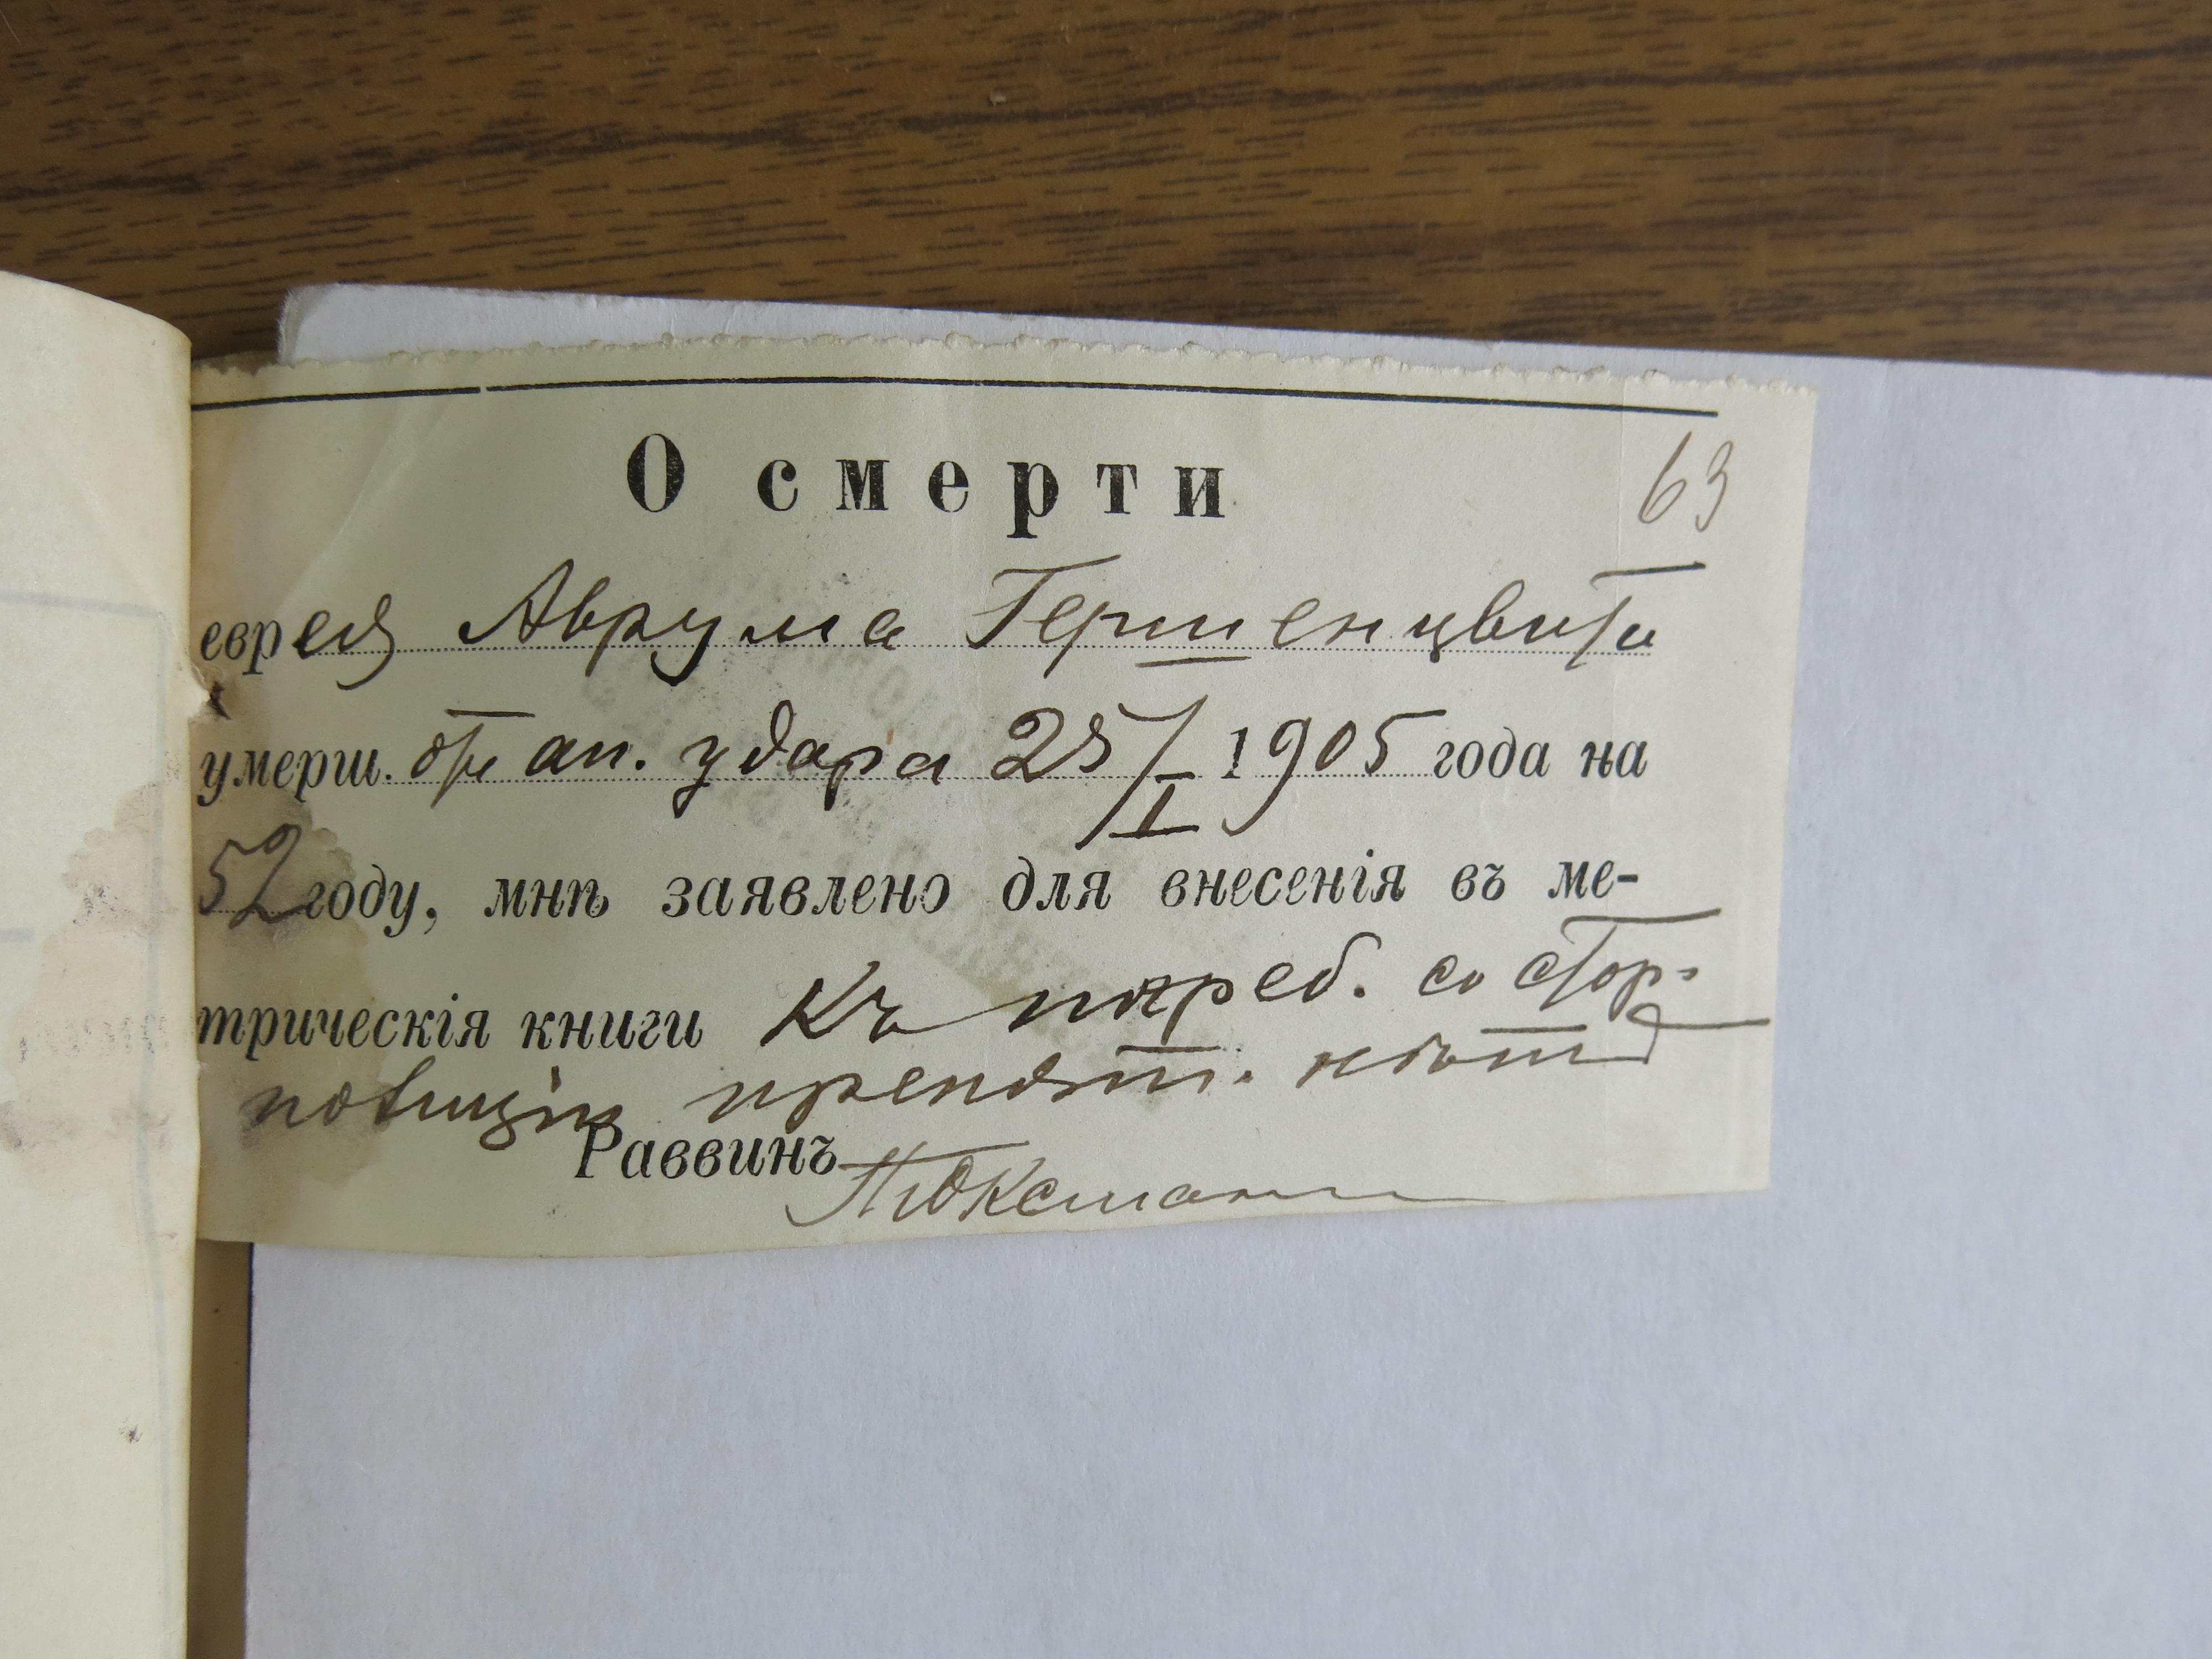 О смерти
63
еврея Аврума Гершенцвита
умерш. отъ ап. удара 25/I 1905 года на
52 году, мнѣ заявлено для внесенія въ ме-
трическія книги Къ погреб. со стор.
полиціи препятст. нѣтъ
Раввинъ